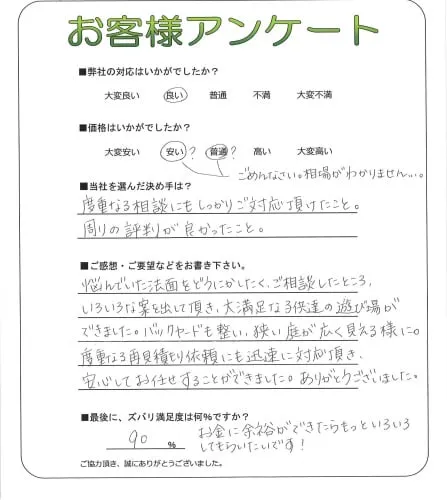 お客様アンケート
■弊社の対応はいかがでしたか？
大変良い 良い 普通 不満 大変不満
■価格はいかがでしたか？
大変安い 安い？ 普通？ 高い 大変高い
ごめんなさい。相場がわかりません…。
■当社を選んだ決め手は？
度重なる相談にもしっかりご対応頂けたこと。
周りの評判が良かったこと。
■ご感想・ご要望などをお書き下さい。
悩んでいた法面をどうにかしたく、ご相談したところ、
いろいろな案を出して頂き、大満足な子供達の遊び場が
できました。バックヤードも整い、狭い庭が広く見える様に。
度重なる再見積り依頼にも迅速に対応頂き、
安心してお任せすることができました。ありがとうございました。
■最後に、ズバリ満足度は何％ですか？
90 ％
お金に余裕ができたらもっといろいろ
してもらいたいです！
ご協力頂き、誠にありがとうございました。